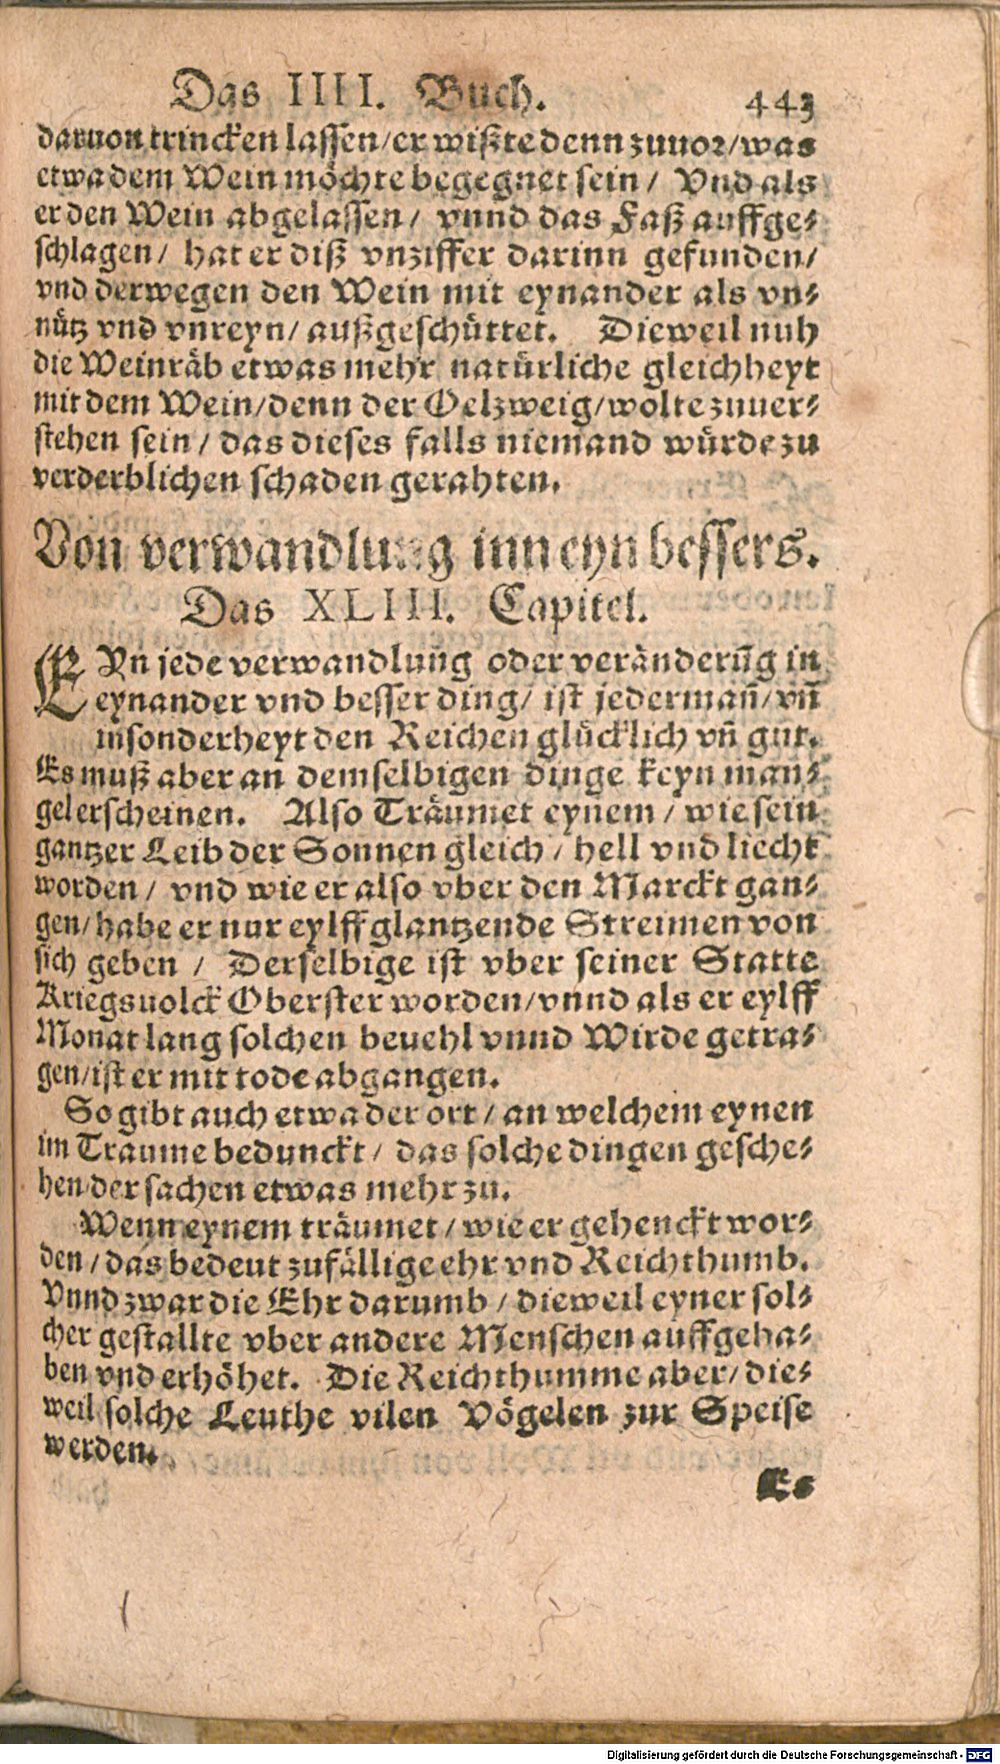 Das IIII. Buch. 443
daruon trincken lassen/er wißte denn zuuor/was
etwa dem Wein möchte begegnet sein / Vnd als
er den Wein abgelassen / vnnd das Faß auffge-
schlagen / hat er diß vnziffer darinn gefunden/
vnd derwegen den Wein mit eynander als vn-
nütz vnd vnreyn/ außgeschüttet. Dieweil nuh
die Weinräb etwas mehr natürliche gleichheyt
mit dem Wein/denn der Oelzweig/wolte zuuer-
stehen sein / das dieses falls niemand würde zu
verderblichen schaden gerahten.
Von verwandlung inn eyn bessers.
Das XLIII. Capitel.
EYn jede verwandlung oder veränderūg in
eynander vnd besser ding/ ist jedermañ/ vñ
insonderheyt den Reichen glücklich vñ gut.
Es muß aber an demselbigen dinge keyn man-
gel erscheinen. Also Träumet eynem / wie sein
gantzer Leib der Sonnen gleich / hell vnd liecht
worden / vnd wie er also vber den Marckt gan-
gen/ habe er nur eylff glantzende Streimen von
sich geben / Derselbige ist vber seiner Statte
Kriegsuolck Oberster worden/vnnd als er eylff
Monat lang solchen beuehl vnnd Wirde getra-
gen/ist er mit tode abgangen.
So gibt auch etwa der ort / an welchem eynen
im Traume bedunckt / das solche dingen gesche-
hen der sachen etwas mehr zu.
Wenn eynem träumet / wie er gehenckt wor-
den / das bedeut zufällige ehr vnd Reichthumb.
Vnnd zwar die Ehr darumb / dieweil eyner sol-
cher gestallte vber andere Menschen auffgeha-
ben vnd erhöhet. Die Reichthumme aber/ die-
weil solche Leuthe vilen Vögelen zur Speise
werden.
Es
Digitalisierung gefördert durch die Deutsche Forschungsgemeinschaft - DFG